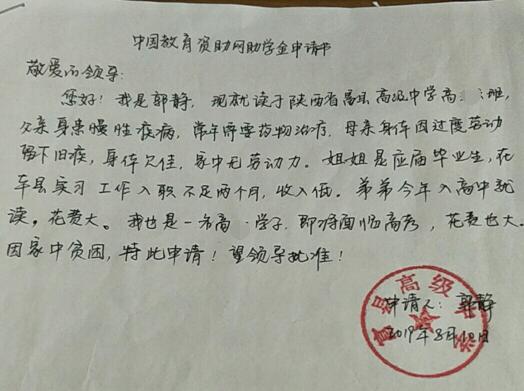 中国教育资助网助学金申请书
敬爱的领导:
您好!我是郭静,现就读于陕西省眉县高级中学高 班,
父亲身患慢性疾病,常年需要药物治疗,母亲身体因过度劳动
留下旧疾,身体欠佳,家中无劳动力。姐姐是应届毕业生,在
车县实习工作入职不足两个月,收入低。弟弟今年入高中就
读,花费大。我也是一名高 学子,即将面临高考,花费也大。
因家中贫困,特此申请!望领导批准!
申请人:郭静
2019年8月12日
县高级中学